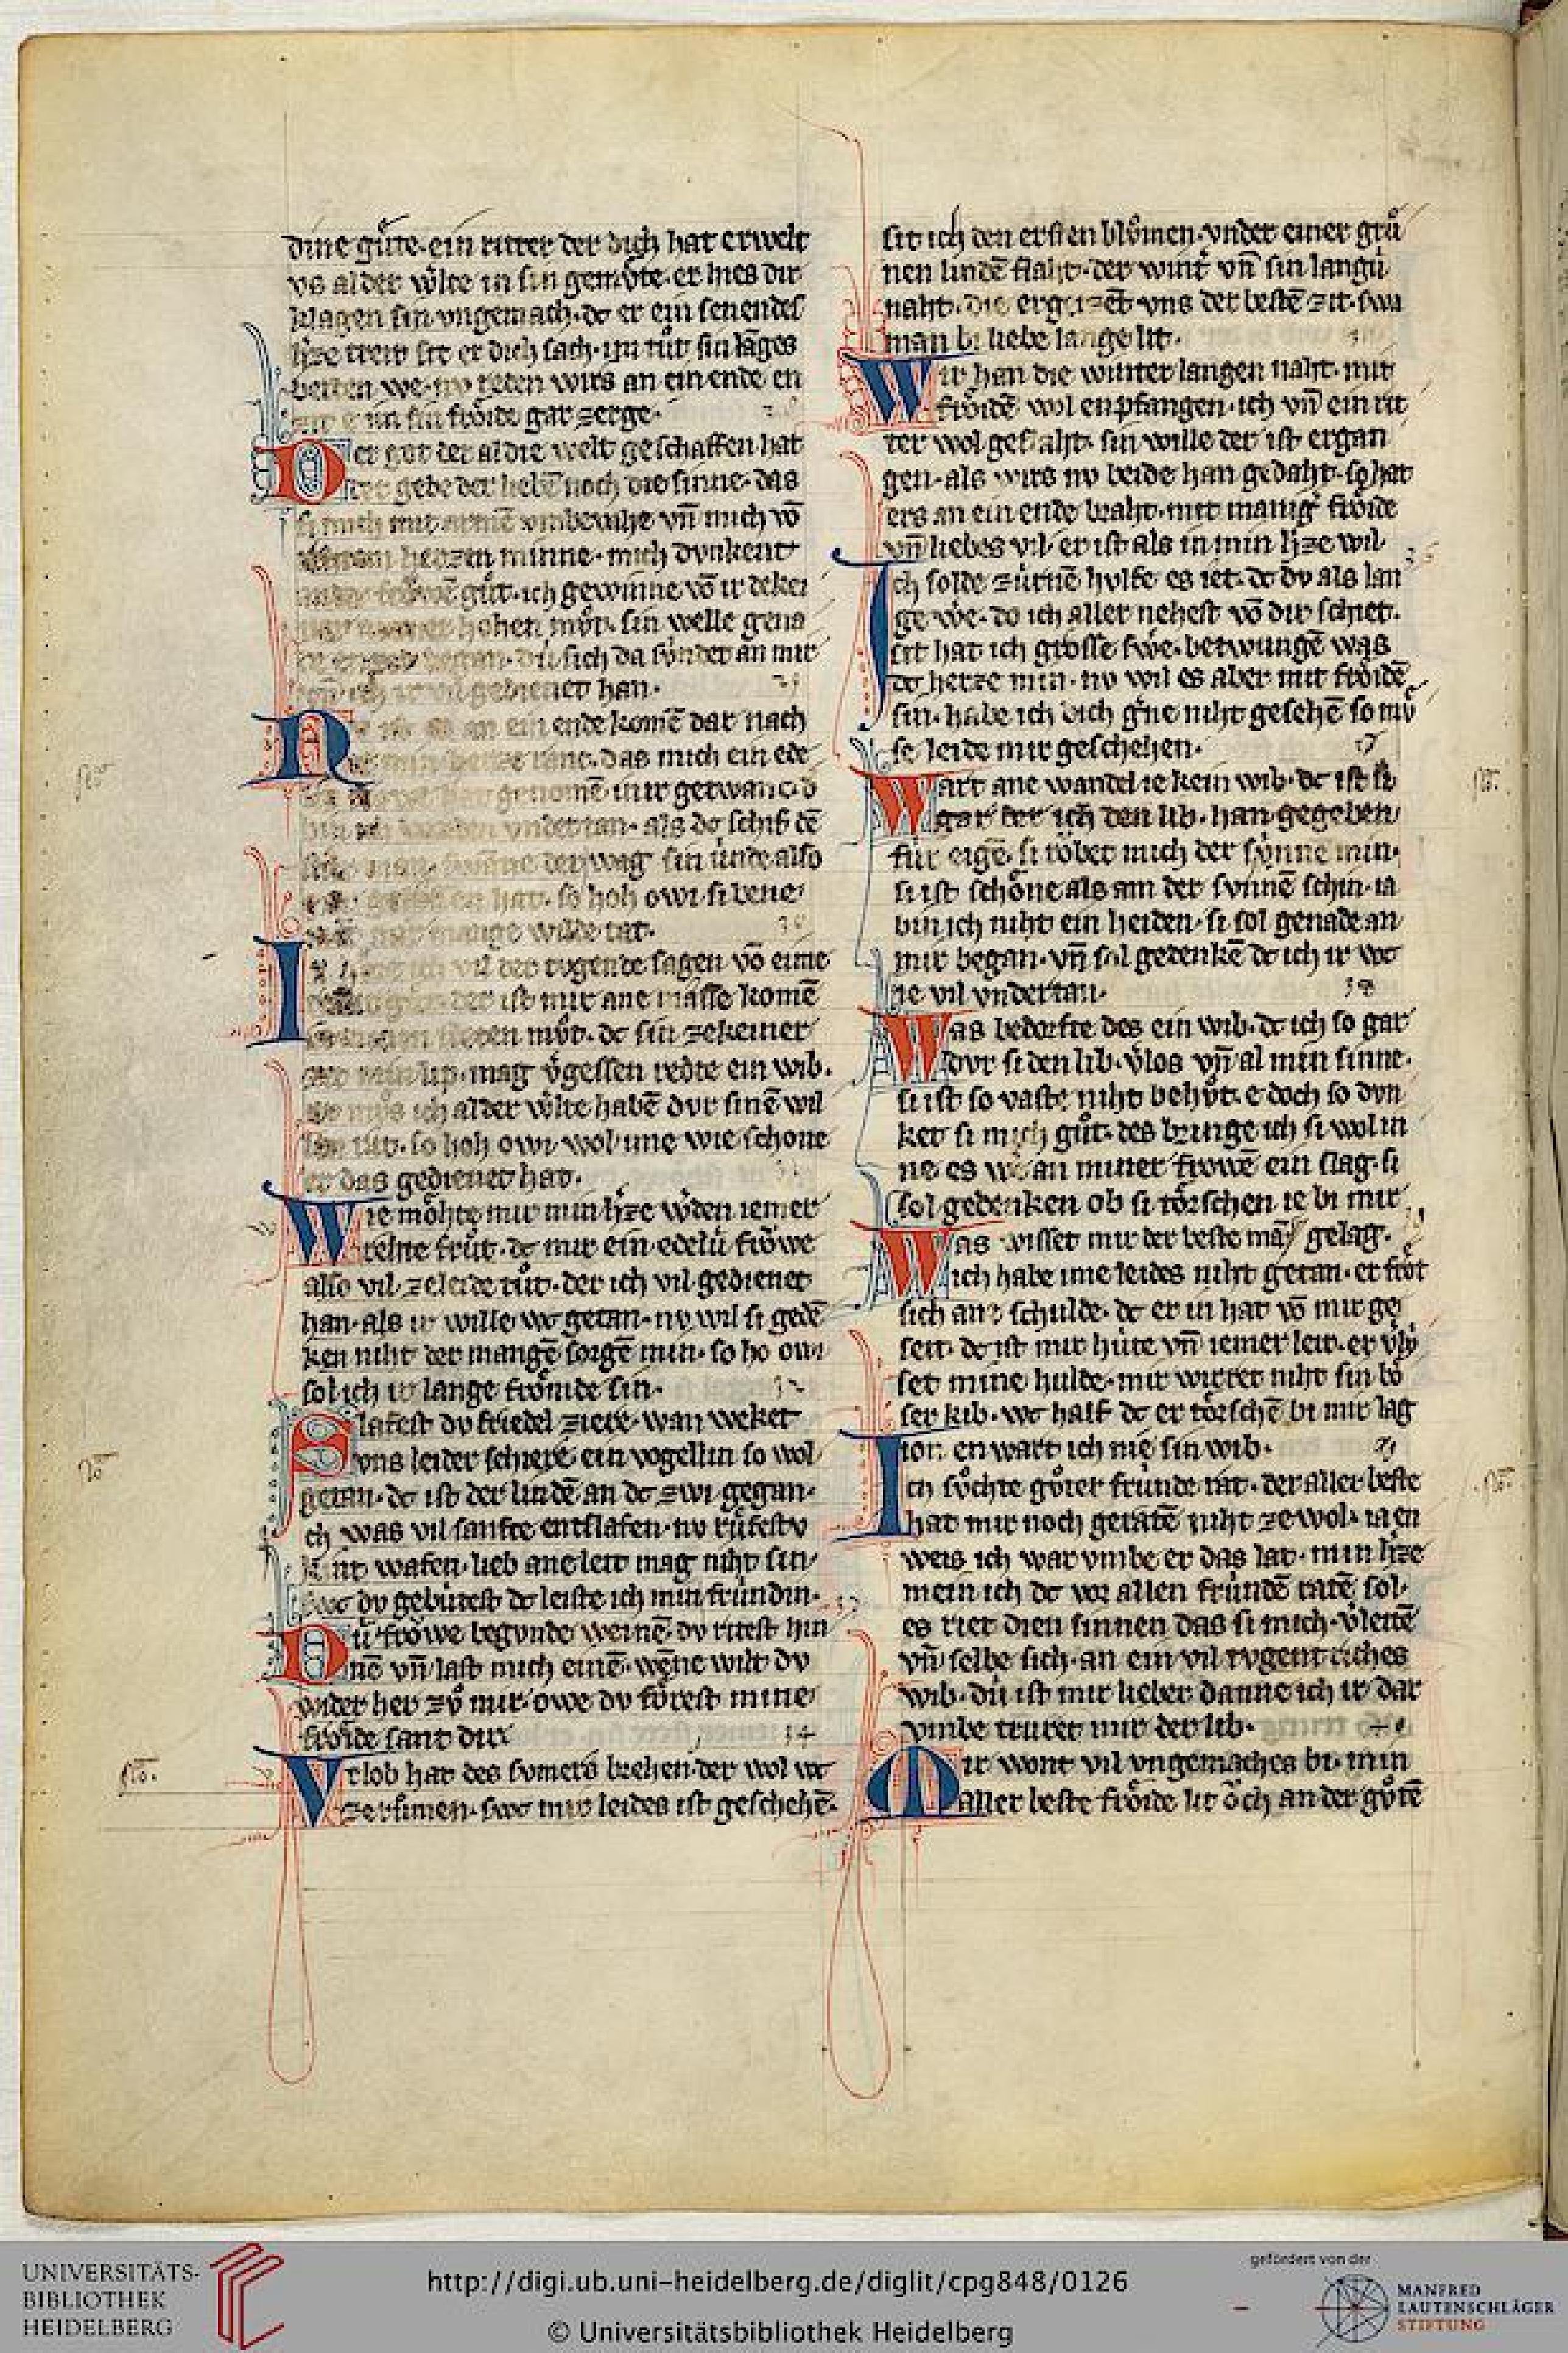 dine gůte· ein ritter der dich hat erwelt
vs al der w̓lte in sin gemv̊te· er hies dir
klagen sin vngemach· dc er ein senendes
h̓ze treit sit er dich sach· im tůt sin lāges
beiten we· nv reden wirs an ein ende en
sin froͤide gar zerge·
Der got der al die welt geschaffen hat
der gebe der liebē noch die sinne· das
si mich mit armē vmbevahe vn̄ mich vō
herzen minne· mich dvnkent
frowē gůt· ich gewinne vō ir dekei
hohen můt· sin welle gena
began· dú sich da sv́nder an mir
ir vil gedienet han·
an ein ende komē dar nach
min herze ranc· das mich ein ede
genomē in ir getwanc· d
bin ich vndertan· als dc schif dē
man· swēne der wag sin v́nde also
hat· so hoh owi· si bene
mange wilde tat·
ich vil der tvgende sagen vō eime
der ist mir ane masse komē
můt· dc sin zekeiner
lip· mag v̓gessen redte ein wib·
mv̊s ich al der w̓lte habē dvr sinē wil
so hoh owi· wol ime wie schone
er das gedienet hat·
Wie moͤhte mir min h̓ze w̓den iemer
rehte frůt· dc mir ein edelú froͮwe
also vil zeleide tůt· der ich vil gedienet
han· als ir wille wc getan· nv wil si gedē
ken niht der mangē sorgē min· so ho owi
sol ich ir lange froͤmde sin·
Slafest dv friedel ziere· wan weket
vns leider schiere· ein vogellin so wol
getan· dc ist der lindē an dc zwi gegan·
ch was vil sanfte entslafen· nv růfestv
kint wafen· lieb ane leit mag niht sin·
swc dv gebútest dc leiste ich min frúndin·
Dú froͮwe begvnde weinē· dv ritest hin
nē vn̄ last mich einē· wēne wilt dv
wider her zv̊ mir· owe dv fůrest mine
froͤide sant dir
Vrlob hat des svmers brehen· der wol wc
zersinnen· swc mir leides ist geschehē·
sit ich den ersten blůmen· vnder einer grů
nen lindē flaht· der wint̓ vn̄ sin langú
naht· die ergetzēt vns der bestē zit· swa
man bi liebe lange lit·
Wir han die winter langen naht· mit
froͤidē wol enpfangen· ich vn̄ ein rit
ter wol geslaht· sin wille der ist ergan
gen· als wirs nv beide han gedaht· so hat
ers an ein ende braht· mit manig̓ froͤide
vn̄ liebes vil· er ist als in min h̓ze wil·
Ich solde zúrnē hvlfe es iet· dc dv als lan
ge w̓e· do ich aller nehest vō dir schiet·
sit hat ich grosse sw̓e· betwungē was
dc herze min· nv wil es aber mit froͤidē
sin· habe ich dich g̓ne niht gesehē so mv̊
se leide mir geschehen·
Wart ane wandel ie kein wib· dc ist si
gar der ich den lib· han gegeben
fúr eigē· si roͮbet mich der sv́nne min·
si ist schoͤne als am der svnnē schin· ia
bin ich niht ein heiden· si sol genade an
mir began· vn̄ sol gedenkē dc ich ir wc
ie vil vndertan·
Was bedorfte des ein wib· dc ich so gar
dvr si den lib· v̓los vn̄ al min sinne·
si ist so vaste niht behůt· e doch so dvn
ket si mich gůt· des bringe ich si wol in
ne es w̓ an miner frowē ein slag· si
sol gedenken ob si toͤrschen ie bi mir
gelag·
Was wisset mir der beste mā
ich habe ime leides niht getan· er froͤt
sich ane schulde· dc er in hat vō mir ge
seit· dc ist mir húte vn̄ iemer leit· er v̓lv́
set mine hulde· mir wirret niht sin boͤ
ser kib· wc half dc er toͤrschē bi mir lag
ion enwart ich nie sin wib·
Ich sv̊chte gv̊ter frúnde rat· der aller beste
hat mir noch geratē niht ze wol· ia en
weis ich war vmbe er das lat· min h̓ze
mein ich dc vor allen frúndē ratē sol·
es riet dien sinnen das si mich v̓leitē
vn̄ selbe sich· an ein vil tvgentriches
wib· dú ist mir lieber danne ich ir dar
vmbe truret mir der lib·
Mir wont vil vngemaches bi· min
aller beste froͤide lit oͮch an der gůtē
UNIVERSITÄTS-
BIBLIOTHEK
HEIDELBERG
http://digi.ub.uni-heidelberg.de/diglit/cpg848/0126
© Universitätsbibliothek Heidelberg
gefördert von der
MANFRED
LAUTENSCHLÄGER
STIFTUNG